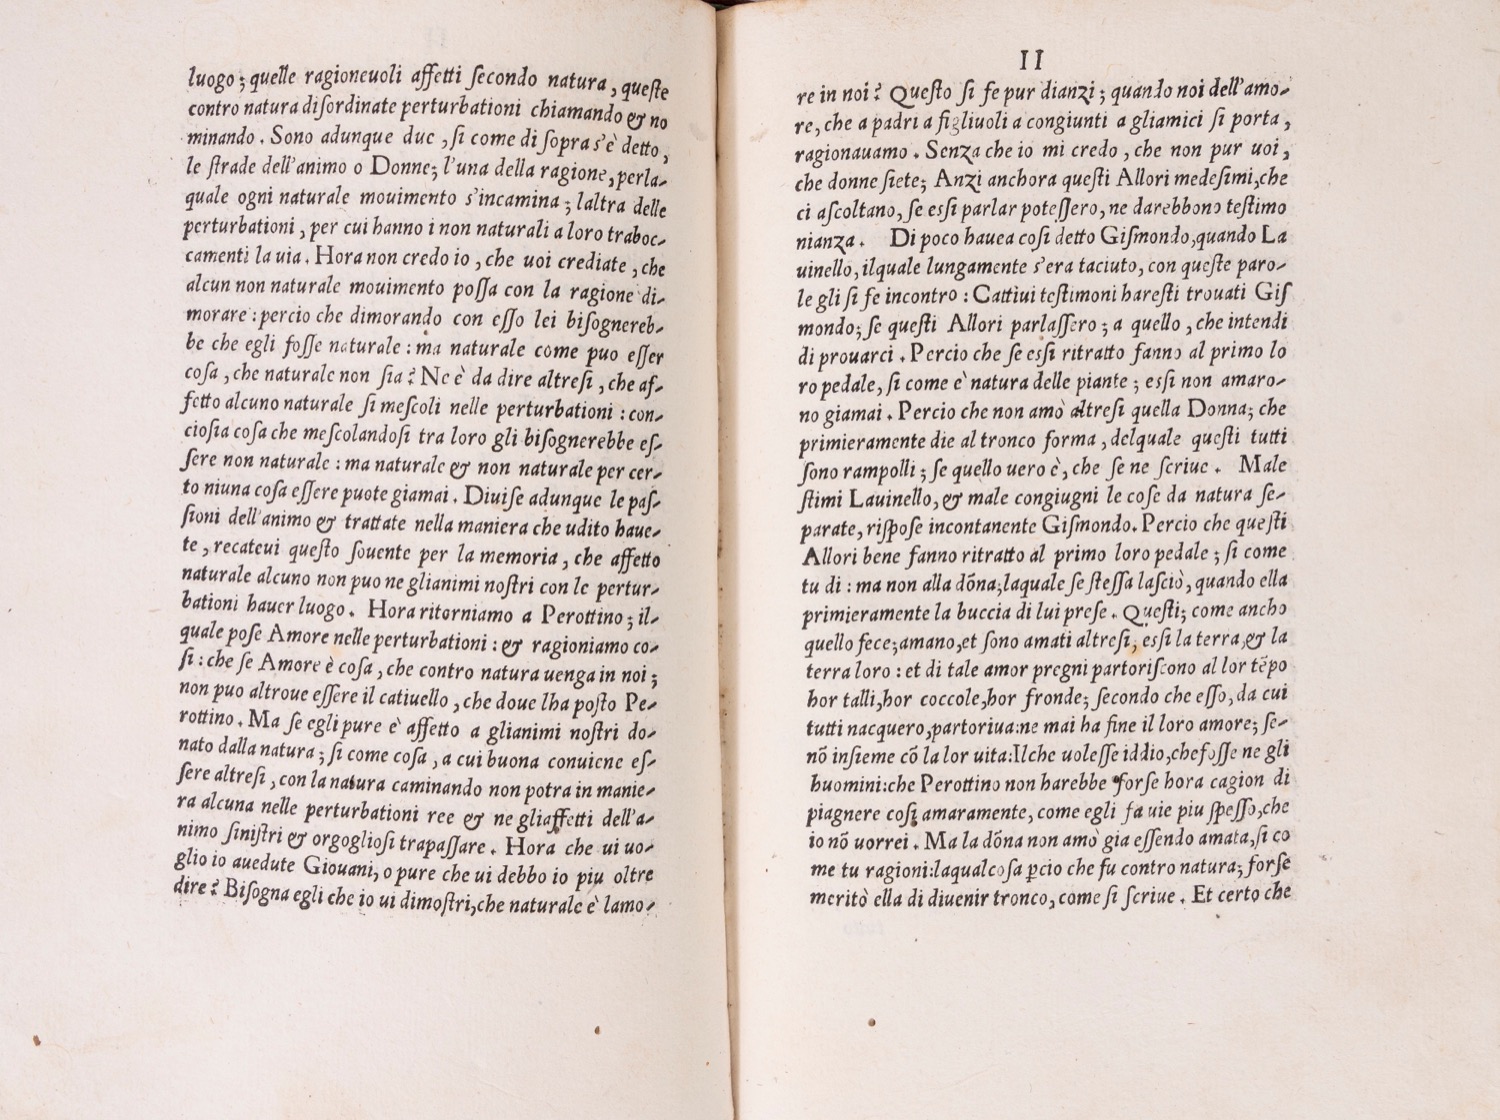 luogo; quelle ragioneuoli affetti ſecondo natura, queſte
contro natura diſordinate perturbationi chiamando & no
minando. Sono adunque due, ſi come di ſopra s'è detto,
le ſtrade dell'animo o Donne; l'una della ragione, perla-
quale ogni naturale mouimento s'incamina; laltra delle
perturbationi, per cui hanno i non naturali a loro traboc-
camenti la uia. Hora non credo io, che uoi crediate, che
alcun non naturale mouimento poſſa con la ragione di-
morare: percio che dimorando con eſſo lei biſognereb-
be che egli foſſe naturale: ma naturale come puo eſſer
coſa, che naturale non ſia? Ne è da dire altreſi, che af-
fetto alcuno naturale ſi meſcoli nelle perturbationi: con-
cioſia coſa che meſcolandoſi tra loro gli biſognerebbe eſ-
ſere non naturale: ma naturale & non naturale per cer-
to niuna coſa eſſere puote giamai. Diuiſe adunque le paſ-
ſioni dell'animo & trattate nella maniera che udito haue-
te, recateui queſto ſouente per la memoria, che affetto
naturale alcuno non puo ne glianimi noſtri con le pertur-
bationi hauer luogo. Hora ritorniamo a Perottino; il-
quale poſe Amore nelle perturbationi: & ragioniamo co-
ſi: che ſe Amore è coſa, che contro natura uenga in noi;
non puo altroue eſſere il catiuello, che doue lha poſto Pe-
rottino. Ma ſe egli pure è affetto a glianimi noſtri do-
nato dalla natura; ſi come coſa, a cui buona conuiene eſ-
ſere altreſi, con la natura caminando non potra in manie-
ra alcuna nelle perturbationi ree & ne gliaffetti dell'a-
nimo ſiniſtri & orgoglioſi trapaſſare. Hora che ui uo-
glio io auedute Giouani, o pure che ui debbo io piu oltre
dire? Biſogna egli che io ui dimoſtri, che naturale è lamo-
II
re in noi? Queſto ſi fe pur dianzi; quando noi dell'amo-
re, che a padri a figliuoli a congiunti a gliamici ſi porta,
ragionauamo. Senza che io mi credo, che non pur uoi,
che donne ſiete; Anzi anchora queſti Allori medeſimi, che
ci aſcoltano, ſe eſſi parlar poteſſero, ne darebbono teſtimo
nianza. Di poco hauea coſi detto Giſmondo, quando La
uinello, ilquale lungamente s'era taciuto, con queſte paro-
le gli ſi fe incontro: Cattiui teſtimoni hareſti trouati Giſ
mondo; ſe queſti Allori parlaſſero; a quello, che intendi
di prouarci. Percio che ſe eſſi ritratto fanno al primo lo
ro pedale, ſi come e' natura delle piante; eſſi non amaro-
no giamai. Percio che non amò altreſi quella Donna; che
primieramente die al tronco forma, delquale queſti tutti
ſono rampolli; ſe quello uero è, che ſe ne ſcriue. Male
ſtimi Lauinello, & male congiugni le coſe da natura ſe-
parate, riſpoſe incontanente Giſmondo. Percio che queſti
Allori bene fanno ritratto al primo loro pedale; ſi come
tu di: ma non alla dōna; laquale ſe ſteſſa laſciò, quando ella
primieramente la buccia di lui preſe. Queſti; come ancho
quello fece; amano, et ſono amati altreſi, eſſi la terra, & la
terra loro: et di tale amor pregni partoriſcono al lor tēpo
hor talli, hor coccole, hor fronde; ſecondo che eſſo, da cui
tutti nacquero, partoriua: ne mai ha fine il loro amore; ſe-
nō inſieme cō la lor uita: Ilche uoleſſe iddio, che foſſe ne gli
huomini: che Perottino non harebbe forſe hora cagion di
piagnere coſi amaramente, come egli fa uie piu ſpeſſo, che
io nō uorrei. Ma la dōna non amò gia eſſendo amata, ſi co
me tu ragioni: laqual coſa ꝑcio che fu contro natura; forſe
meritò ella di diuenir tronco, come ſi ſcriue. Et certo che